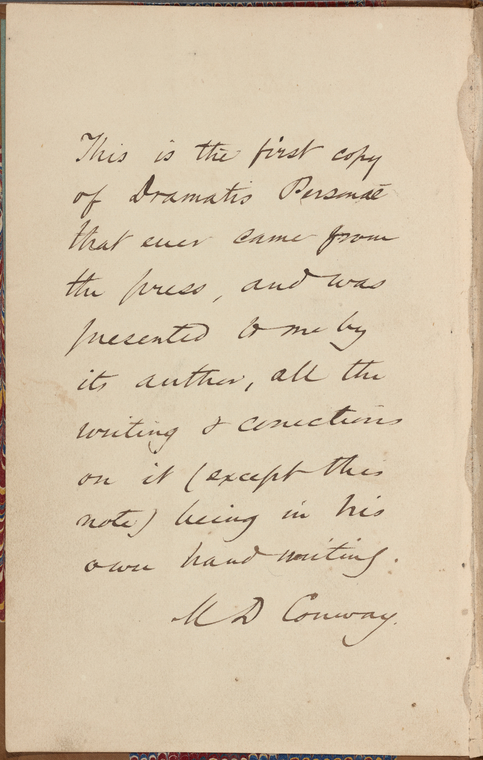 This is the first copy
of Dramatis Personæ
that ever came from
the press, and was
presented to me by
its author, all the
writing & corrections
on it (except this
note) being in his
own hand writing.
M D Conway.